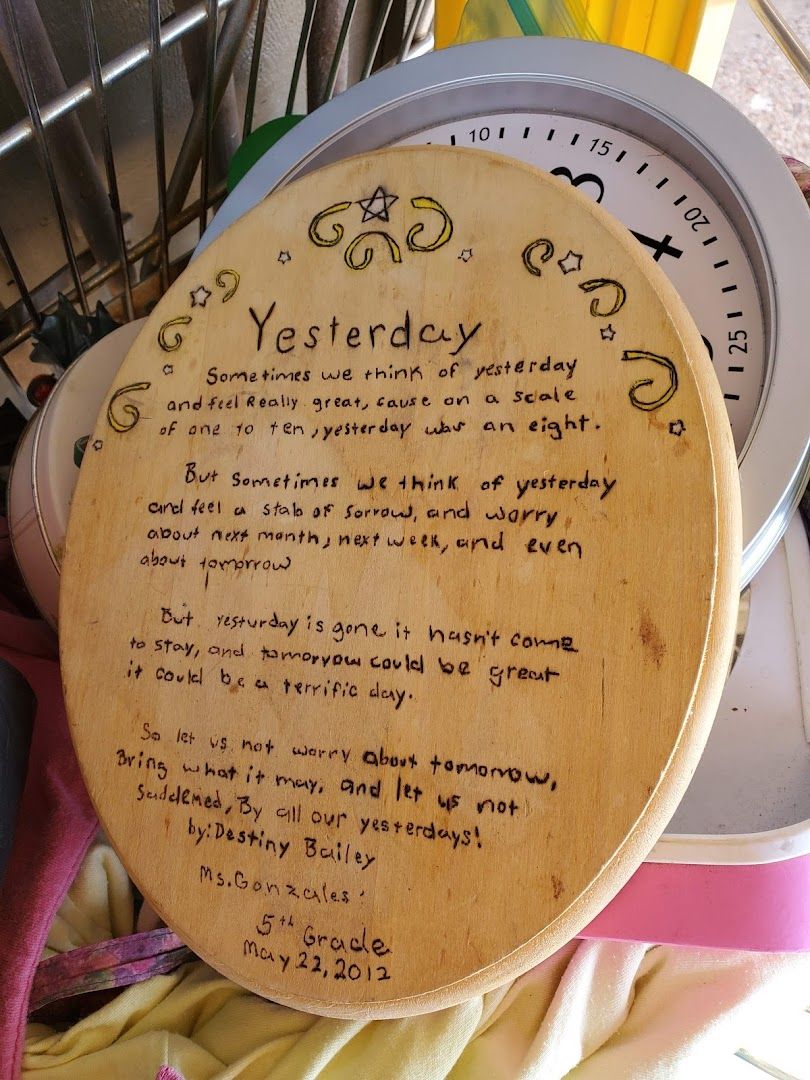 10
15
20
25
3
4
Yesterday
Sometimes we think of yesterday
and feel Really great, cause on a scale
of one to ten, yesterday was an eight.
But sometimes we think of yesterday
and feel a stab of sorrow, and worry
about next month, next week, and even
about tomorrow
But yesturday is gone it hasn't come
to stay, and tomorrow could be great
it could be a terrific day.
So let us not worry about tomorrow,
Bring what it may, and let us not
Saddened, By all our yesterdays!
by: Destiny Bailey
Ms. Gonzales'
5th Grade
May 22, 2012